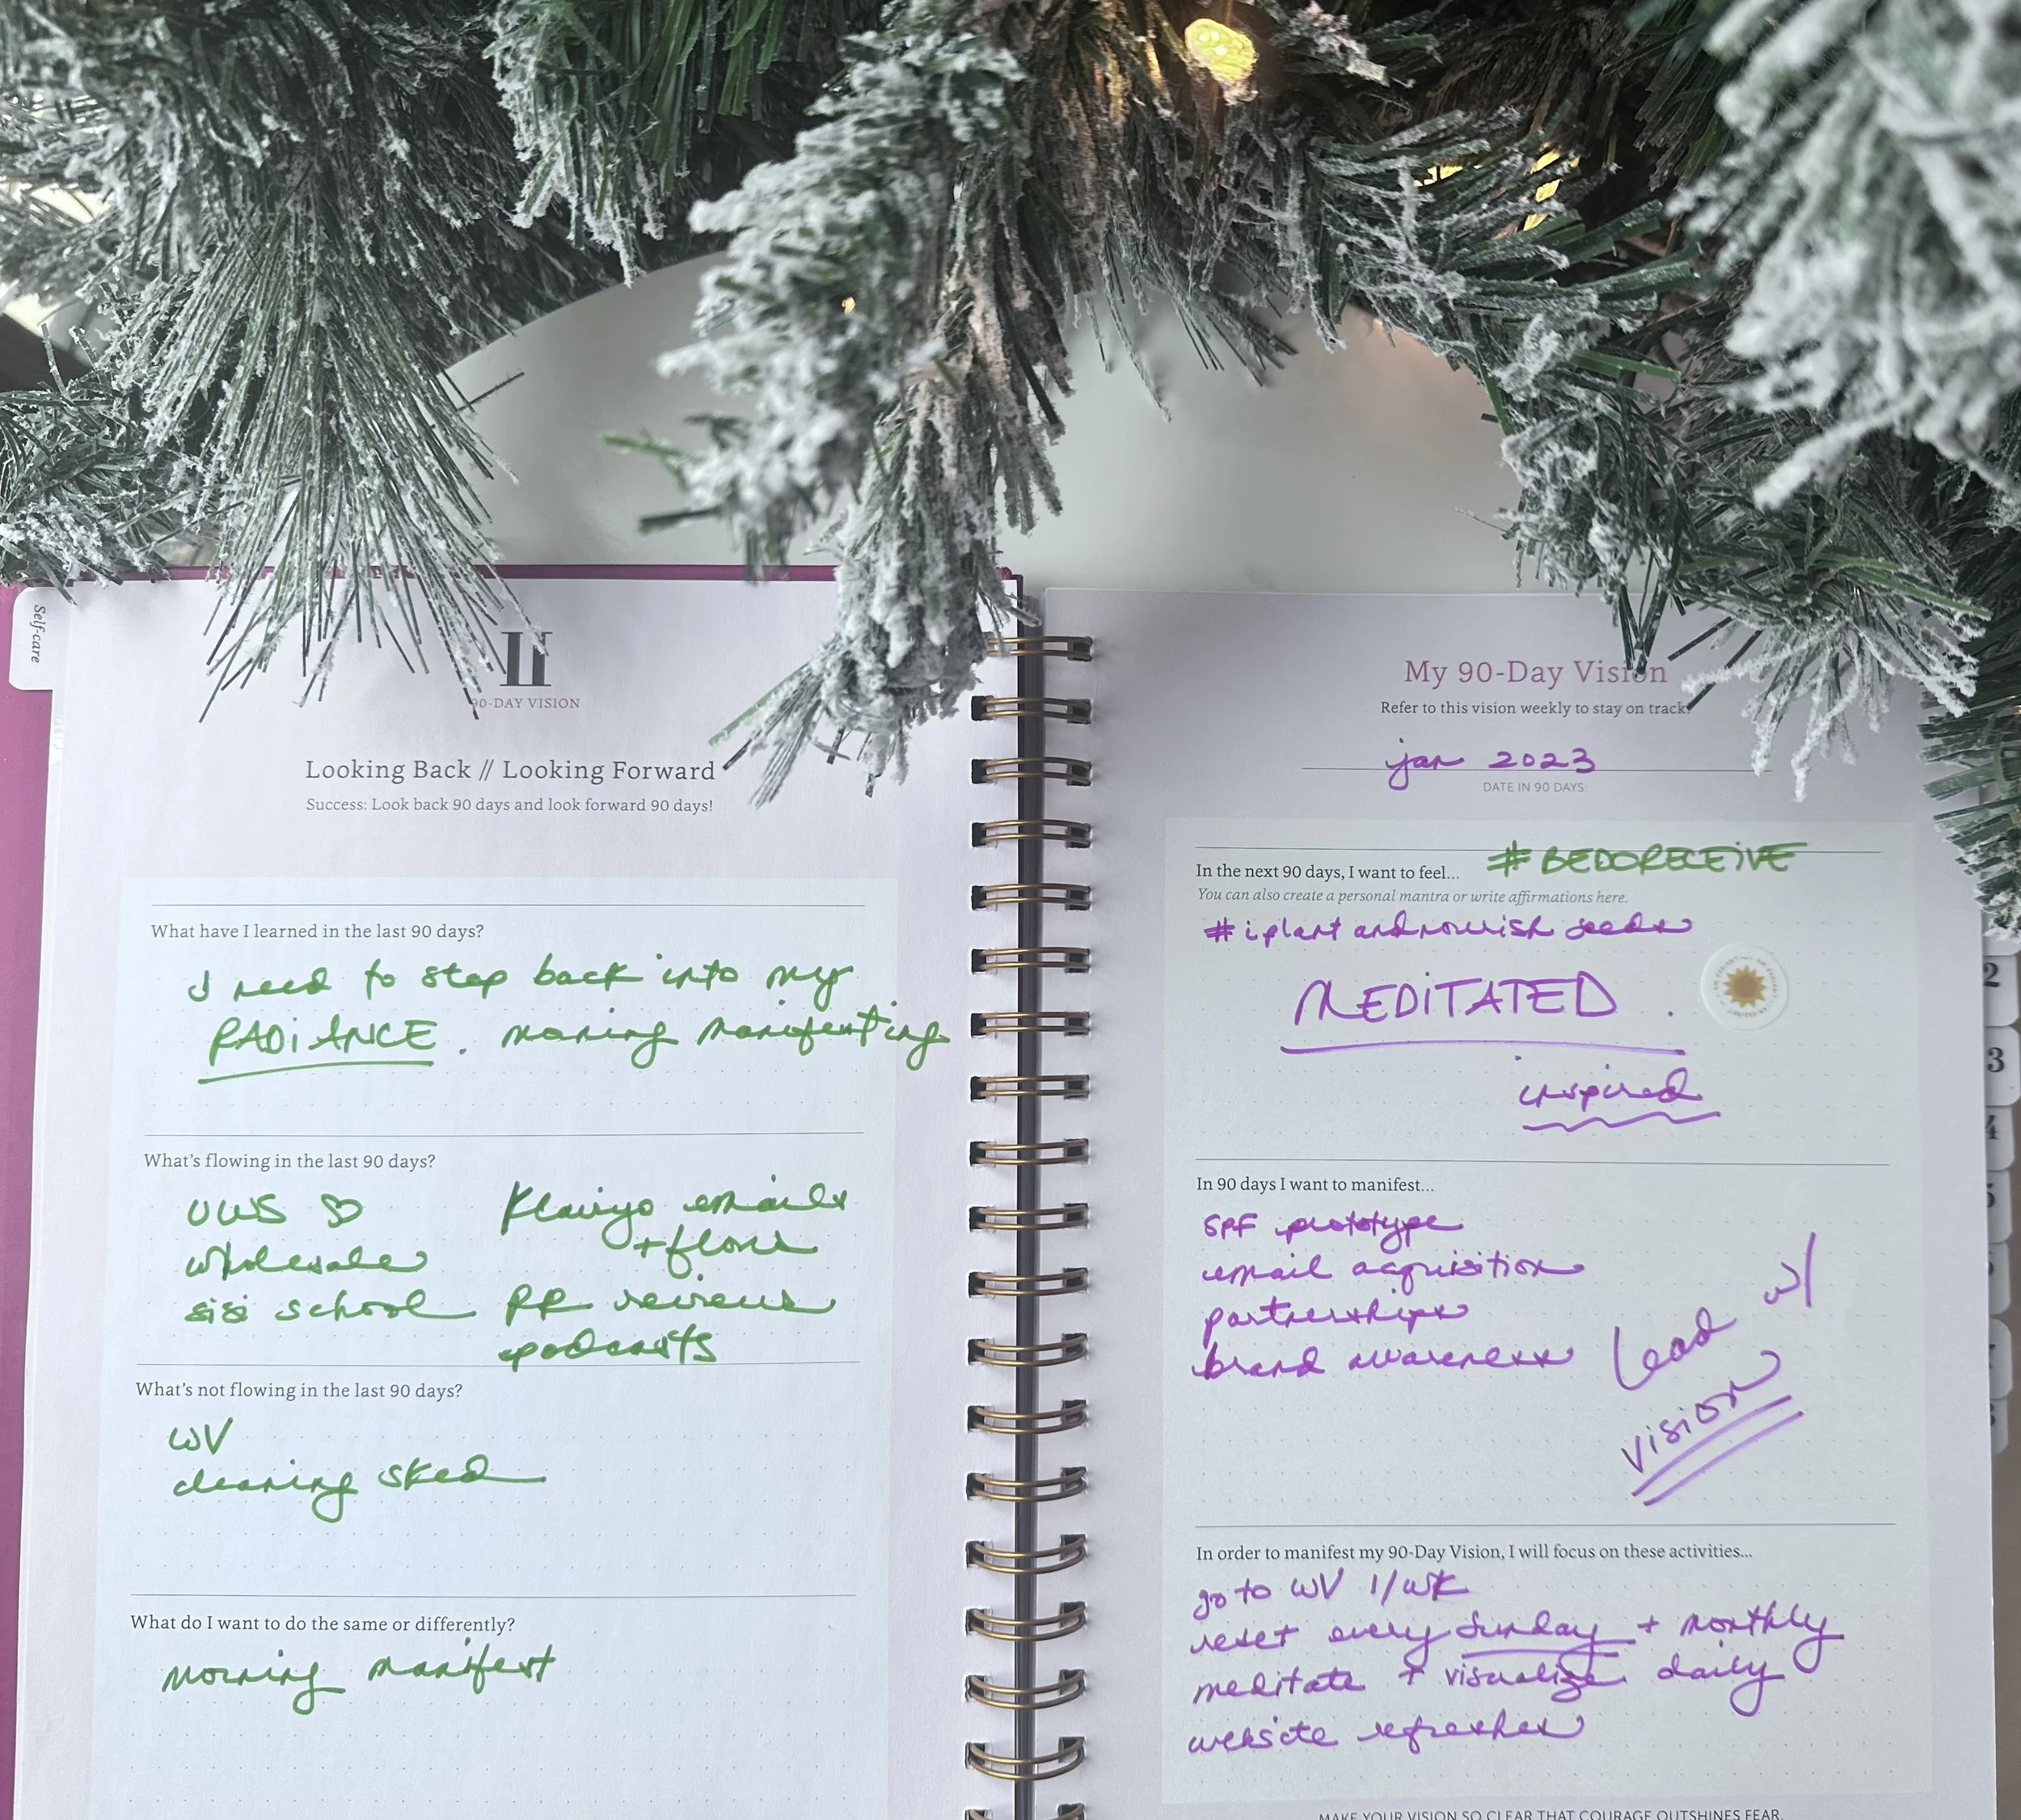 Self-care
II
90-DAY VISION
Looking Back // Looking Forward
Success: Look back 90 days and look forward 90 days!
What have I learned in the last 90 days?
I need to step back into my
RADiANCE. morning manifesting
What's flowing in the last 90 days?
UWS ♡
wholesale
sisi school
Klaviyo emails
+ flows
PR reviews
podcasts
What's not flowing in the last 90 days?
WV
cleaning sked
What do I want to do the same or differently?
morning manifest
My 90-Day Vision
Refer to this vision weekly to stay on track.
jan 2023
DATE IN 90 DAYS:
In the next 90 days, I want to feel... #BEDORECEiVE
You can also create a personal mantra or write affirmations here.
#iplantandnourish seeds
MEDiTATED
inspired
In 90 days I want to manifest...
SPF prototype
email acquisition
partnerships
brand awareness
Lead w/
vision
In order to manifest my 90-Day Vision, I will focus on these activities...
go to WV 1/wk
reset every Sunday + monthly
meditate + visualize daily
website refreshes
MAKE YOUR VISION SO CLEAR THAT COURAGE OUTSHINES FEAR.
2
3
4
5
7